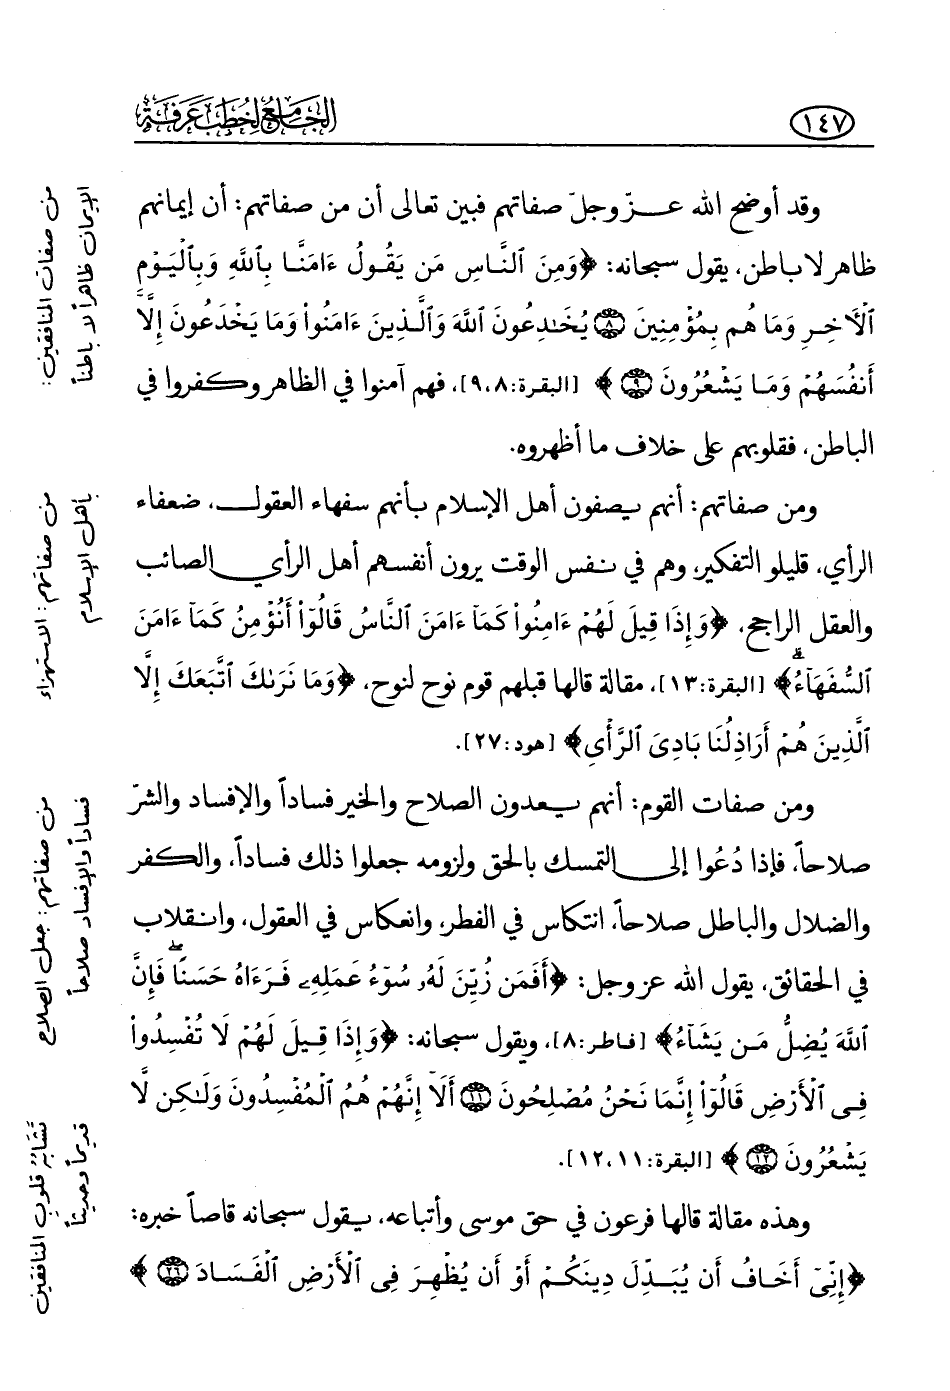 ١٤٧
الجامع لخطب عرفة
وقد أوضح الله عـز وجلّ صفاتهم فبين تعالى أن من صفاتهم: أن إيمانهم
ظاهر لا باطن، يقول سبحانه: ﴿وَمِنَ ٱلنَّاسِ مَن يَقُولُ ءَامَنَّا بِٱللَّهِ وَبِٱلْيَوْمِ
ٱلْـَٔاخِرِ وَمَا هُم بِمُؤْمِنِينَ ۝٨ يُخَـٰدِعُونَ ٱللَّهَ وَٱلَّذِينَ ءَامَنُوا۟ وَمَا يَخْدَعُونَ إِلَّآ
أَنفُسَهُمْ وَمَا يَشْعُرُونَ ۝٩﴾ [البقرة:٩،٨]، فهم آمنوا في الظاهر وكفروا في
الباطن، فقلوبهم على خلاف ما أظهروه.
ومن صفاتهم: أنهم يصفون أهل الإسلام بأنهم سفهاء العقول، ضعفاء
الرأي، قليلو التفكير، وهم في نفس الوقت يرون أنفسهم أهل الرأي الصائب
والعقل الراجح، ﴿وَإِذَا قِيلَ لَهُمْ ءَامِنُوا۟ كَمَآ ءَامَنَ ٱلنَّاسُ قَالُوٓا۟ أَنُؤْمِنُ كَمَآ ءَامَنَ
ٱلسُّفَهَآءُ ۗ﴾ [البقرة:١٣]، مقالة قالها قبلهم قوم نوح لنوح، ﴿وَمَا نَرَىٰكَ ٱتَّبَعَكَ إِلَّا
ٱلَّذِينَ هُمْ أَرَاذِلُنَا بَادِىَ ٱلرَّأْىِ﴾ [هود:٢٧].
ومن صفات القوم: أنهم يعدون الصلاح والخير فساداً والإفساد والشرّ
صلاحاً، فإذا دُعُوا إلى التمسك بالحق ولزومه جعلوا ذلك فساداً، والكفر
والضلال والباطل صلاحاً، انتكاس في الفطر، وانعكاس في العقول، وانقلاب
في الحقائق، يقول الله عز وجل: ﴿أَفَمَن زُيِّنَ لَهُۥ سُوٓءُ عَمَلِهِۦ فَرَءَاهُ حَسَنًا ۖ فَإِنَّ
ٱللَّهَ يُضِلُّ مَن يَشَآءُ﴾ [فاطر:٨]، ويقول سبحانه: ﴿وَإِذَا قِيلَ لَهُمْ لَا تُفْسِدُوا۟
فِى ٱلْأَرْضِ قَالُوٓا۟ إِنَّمَا نَحْنُ مُصْلِحُونَ ۝١١ أَلَآ إِنَّهُمْ هُمُ ٱلْمُفْسِدُونَ وَلَـٰكِن لَّا
يَشْعُرُونَ ۝١٢﴾ [البقرة:١٢،١١].
وهذه مقالة قالها فرعون في حق موسى وأتباعه، يقول سبحانه قاصاً خبره:
﴿إِنِّىٓ أَخَافُ أَن يُبَدِّلَ دِينَكُمْ أَوْ أَن يُظْهِرَ فِى ٱلْأَرْضِ ٱلْفَسَادَ ۝٢٦﴾
من صفات المنافقين:
الإيمان ظاهراً لا باطناً
من صفاتهم: الاستهزاء
بأهل الإسلام
من صفاتهم: جعل الصلاح
فساداً والإفساد صلاحاً
تَشَابُهُ قلوب المنافقين
قديماً وحديثاً